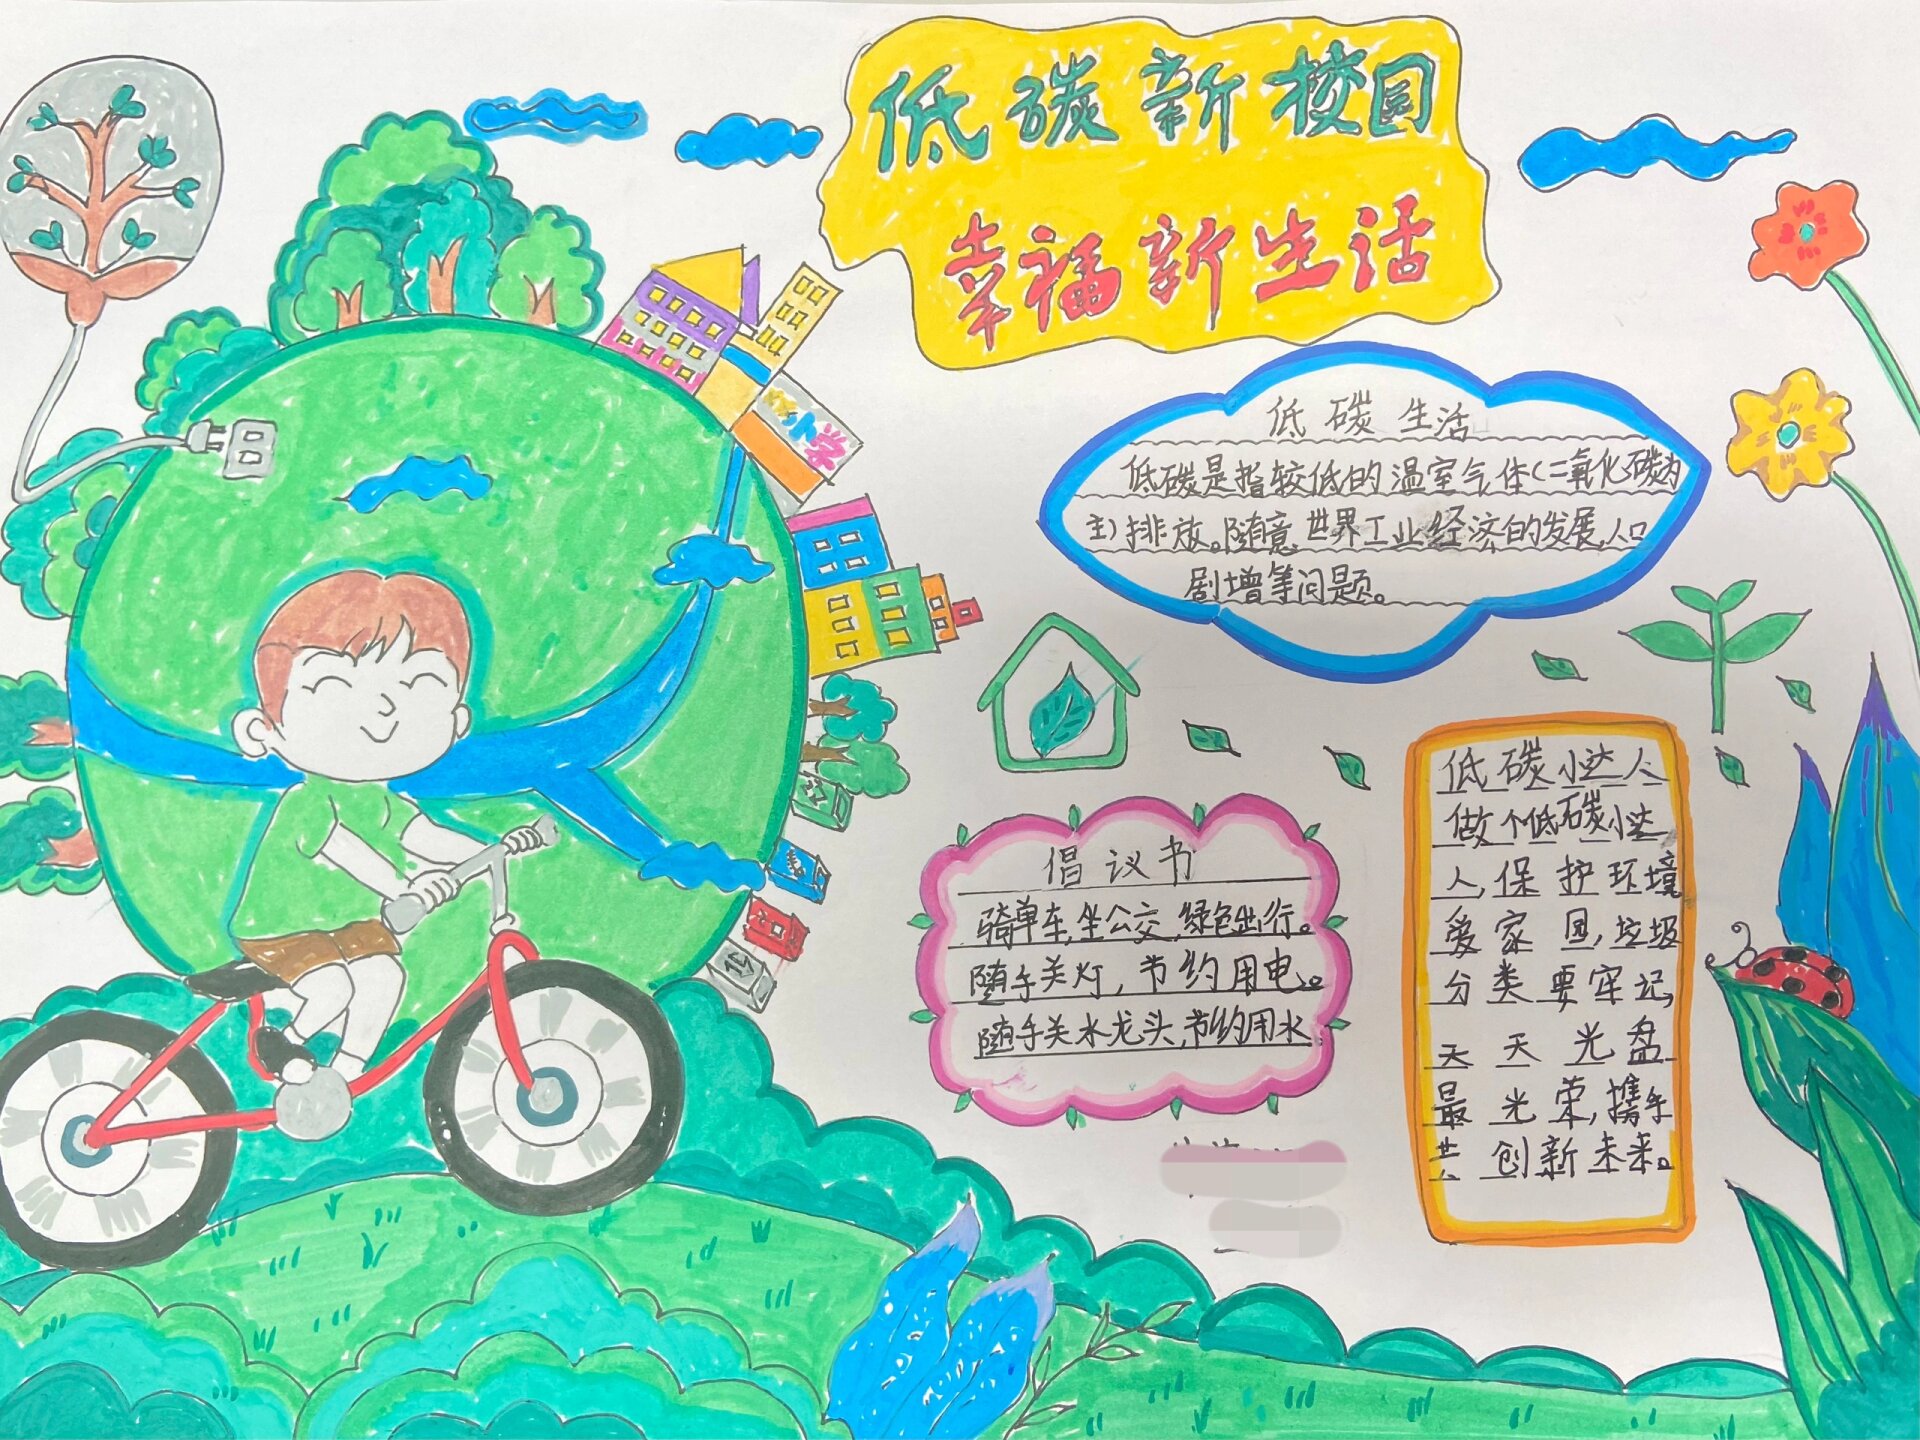 低碳新校园
幸福新生活
小学
低碳生活
低碳是指较低的温室气体(二氧化碳为
主)排放。随意世界工业经济的发展,人口
剧增等问题。
倡议书
骑单车,坐公交,绿色出行。
随手关灯,节约用电。
随手关水龙头,节约用水
低碳小达人
做个低碳小达
人,保护环境
爱家园,垃圾
分类要牢记,
天天光盘
最光荣,携手
共创新未来。